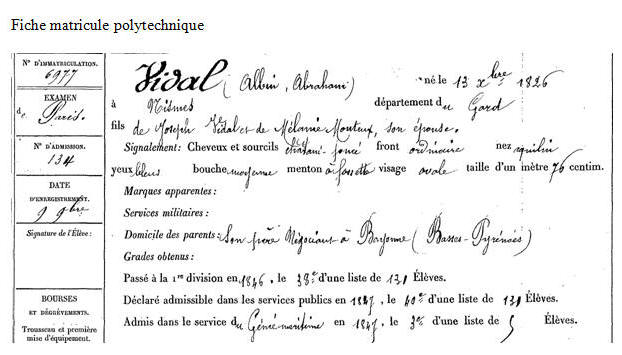 Fiche matricule polytechnique
N° D'IMMATRICULATION.
6977
EXAMEN
de Paris.
N° D'ADMISSION.
134
DATE
D'ENREGISTREMENT.
9 9bre
Signature de l'Élève :
BOURSES
ET DÉGRÈVEMENTS.
Trousseau et première
mise d'équipement.
Vidal (Albin, Abraham) né le 13 Xbre 1826
à Nismes département du Gard
fils de Joseph Vidal et de Mélanie Monteux, son épouse.
Signalement : Cheveux et sourcils châtain-foncé front ordinaire nez aquilin
yeux bleus bouche moyenne menton à fossette visage ovale taille d'un mètre 76 centim.
Marques apparentes :
Services militaires :
Domicile des parents : Son père Négociant à Bayonne (Basses-Pyrénées)
Grades obtenus :
Passé à la 1re division en 1846, le 38e d'une liste de 131 Élèves.
Déclaré admissible dans les services publics en 1847, le 40e d'une liste de 131 Élèves.
Admis dans le service du Génie maritime en 1847, le 3e d'une liste de 5 Élèves.